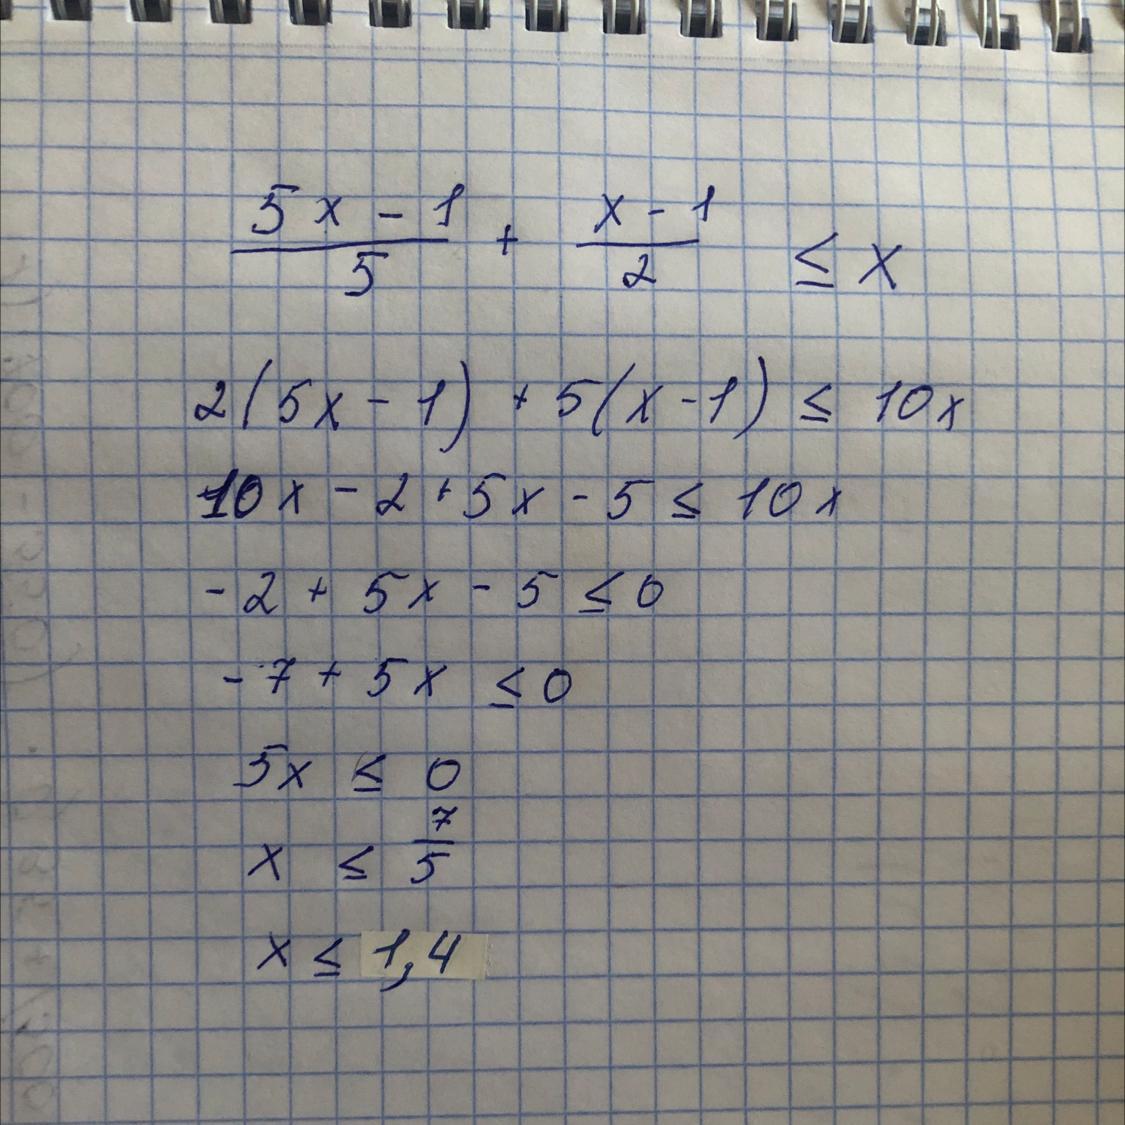 (5x - 1)/5 + (x - 1)/2 ≤ x
2(5x - 1) + 5(x - 1) ≤ 10x
10x - 2 + 5x - 5 ≤ 10x
-2 + 5x - 5 ≤ 0
-7 + 5x ≤ 0
5x ≤ 0
x ≤ 7/5
x ≤ 1,4